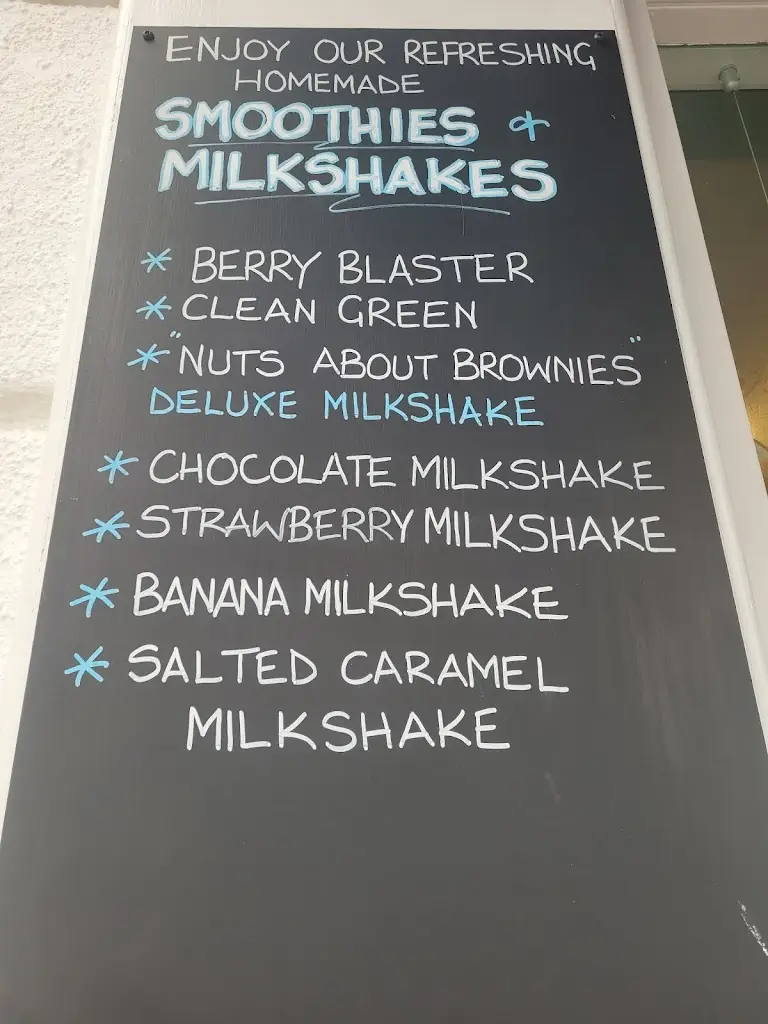 ENJOY OUR REFRESHING
HOMEMADE
SMOOTHIES &
MILKSHAKES
* BERRY BLASTER
* CLEAN GREEN
* "NUTS ABOUT BROWNIES"
DELUXE MILKSHAKE
* CHOCOLATE MILKSHAKE
* STRAWBERRY MILKSHAKE
* BANANA MILKSHAKE
* SALTED CARAMEL
MILKSHAKE